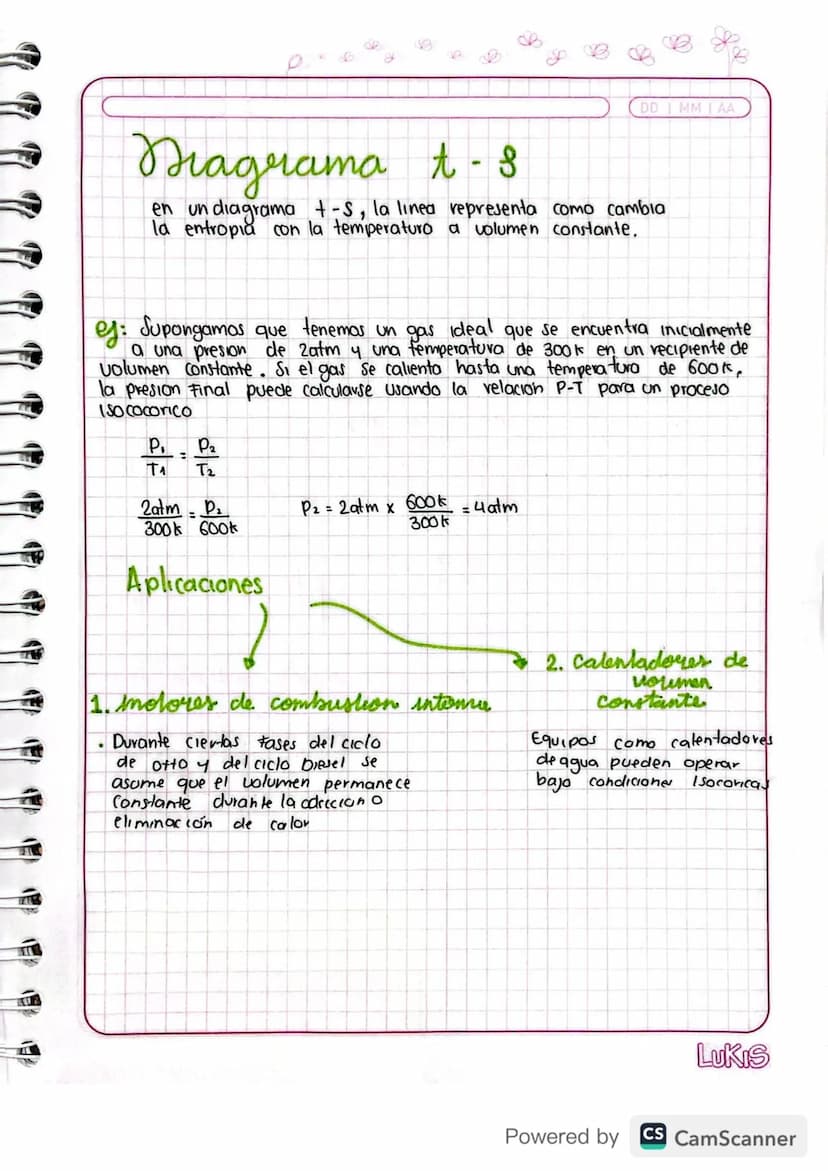 DD | MM | AA
Diagrama t - s
en un diagrama t-s, la linea representa como cambia
la entropia con la temperatura a volumen constante.
ej: Supongamos que tenemos un gas ideal que se encuentra inicialmente
a una presion de 2atm y una temperatura de 300k en un recipiente de
volumen constante. Si el gas se caliento hasta una temperatura de 600k,
la presion final puede calcularse usando la relacion P-T para un proceso
Isococorico
P₁/T1 = P₂/T₂
2atm/300k = P₂/600k P₂ = 2atm x 600k/300k = 4atm
Aplicaciones
2. Calentadores de
volumen
constante
1. motores de combustion interna
• Durante ciertas fases del ciclo
de otto y del ciclo Diesel se
asume que el volumen permanece
constante durante la adiccion o
eliminacción de calor
Equipos como calentadores
de agua pueden operar
bajo condiciones Isocoricas
LUKIS
Powered by CS CamScanner